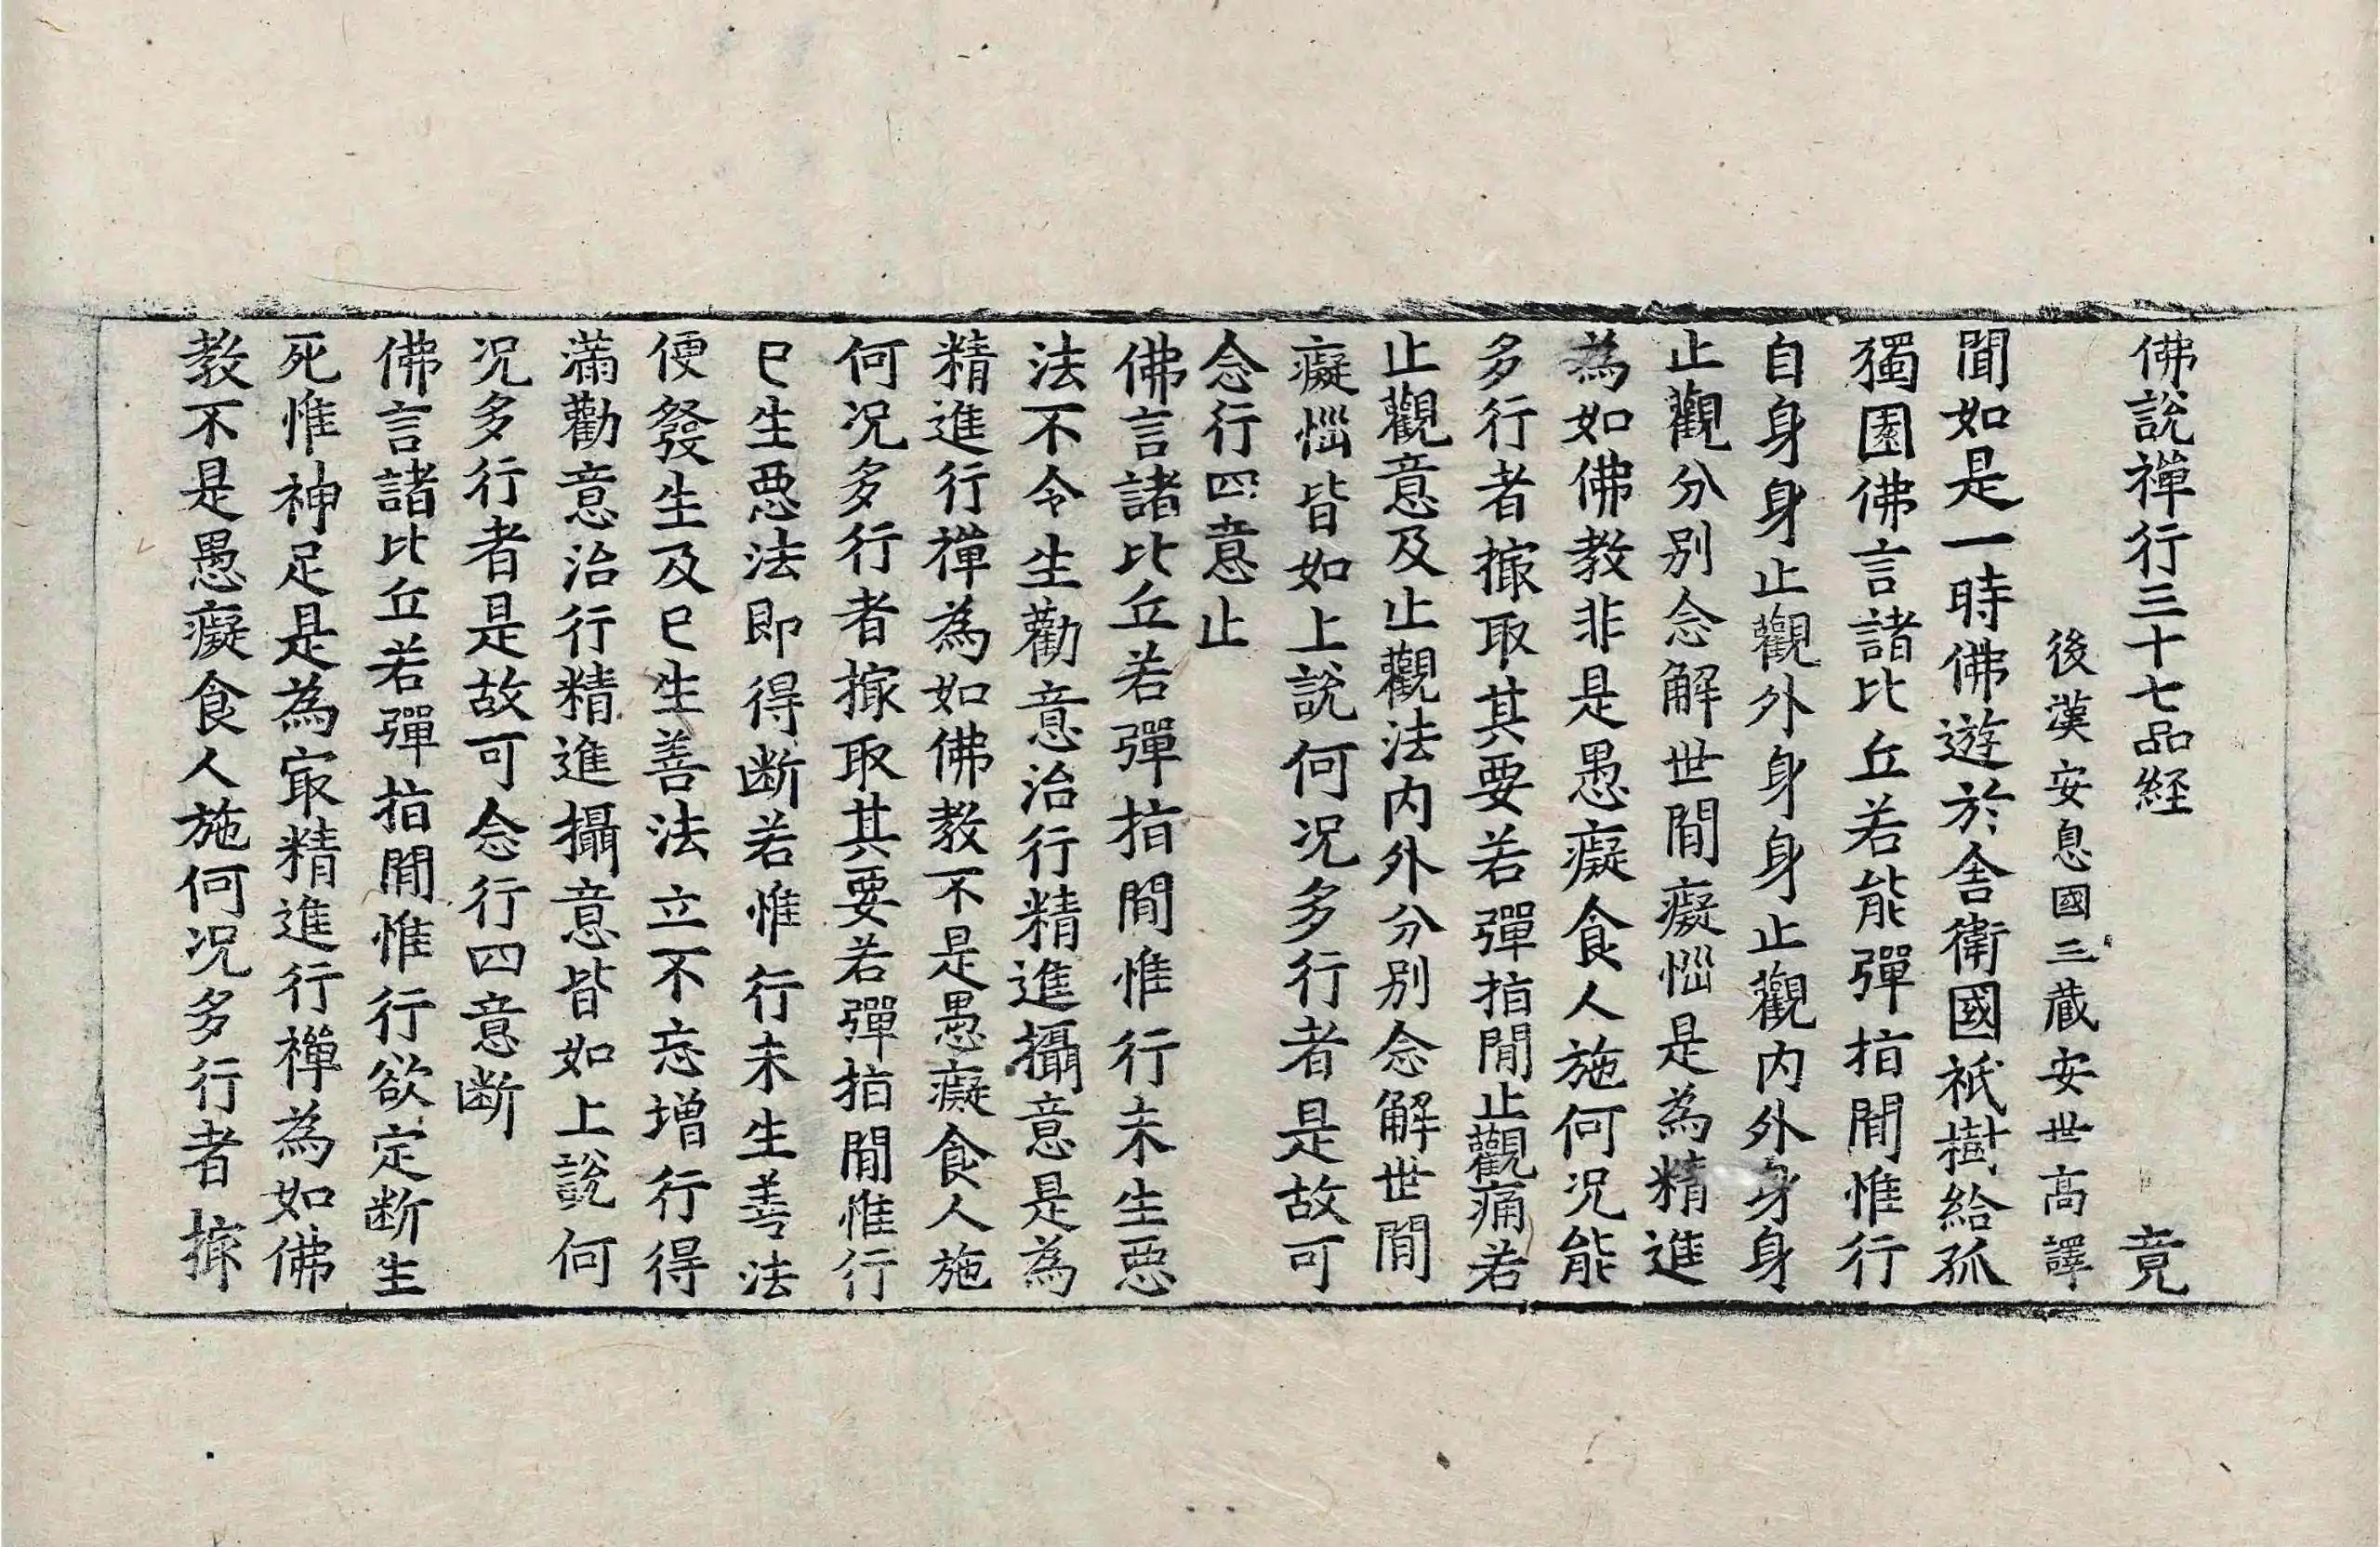 佛說禪行三十七品経 竟
後漢安息國三蔵安世高譯
聞如是一時佛遊於舎衛國祇樹給孤
獨園佛言諸比丘若能彈指間惟行
自身身止觀外身身止觀内外身身
止觀分別念解世間癡惱是為精進
為如佛教非是愚癡食人施何况能
多行者撮取其要若彈指間止觀痛若
止觀意及止觀法内外分別念解世間
癡惱皆如上說何况多行者是故可
念行四意止
佛言諸比丘若彈指間惟行未生惡
法不令生勸意治行精進攝意是為
精進行禪為如佛教不是愚癡食人施
何况多行者撮取其要若彈指間惟行
已生惡法即得断若惟行未生善法
便發生及已生善法立不忘增行得
滿勸意治行精進攝意皆如上說何
况多行者是故可念行四意断
佛言諸比丘若彈指間惟行欲定断生
死惟神足是為寂精進行禪為如佛
教不是愚癡食人施何况多行者撮